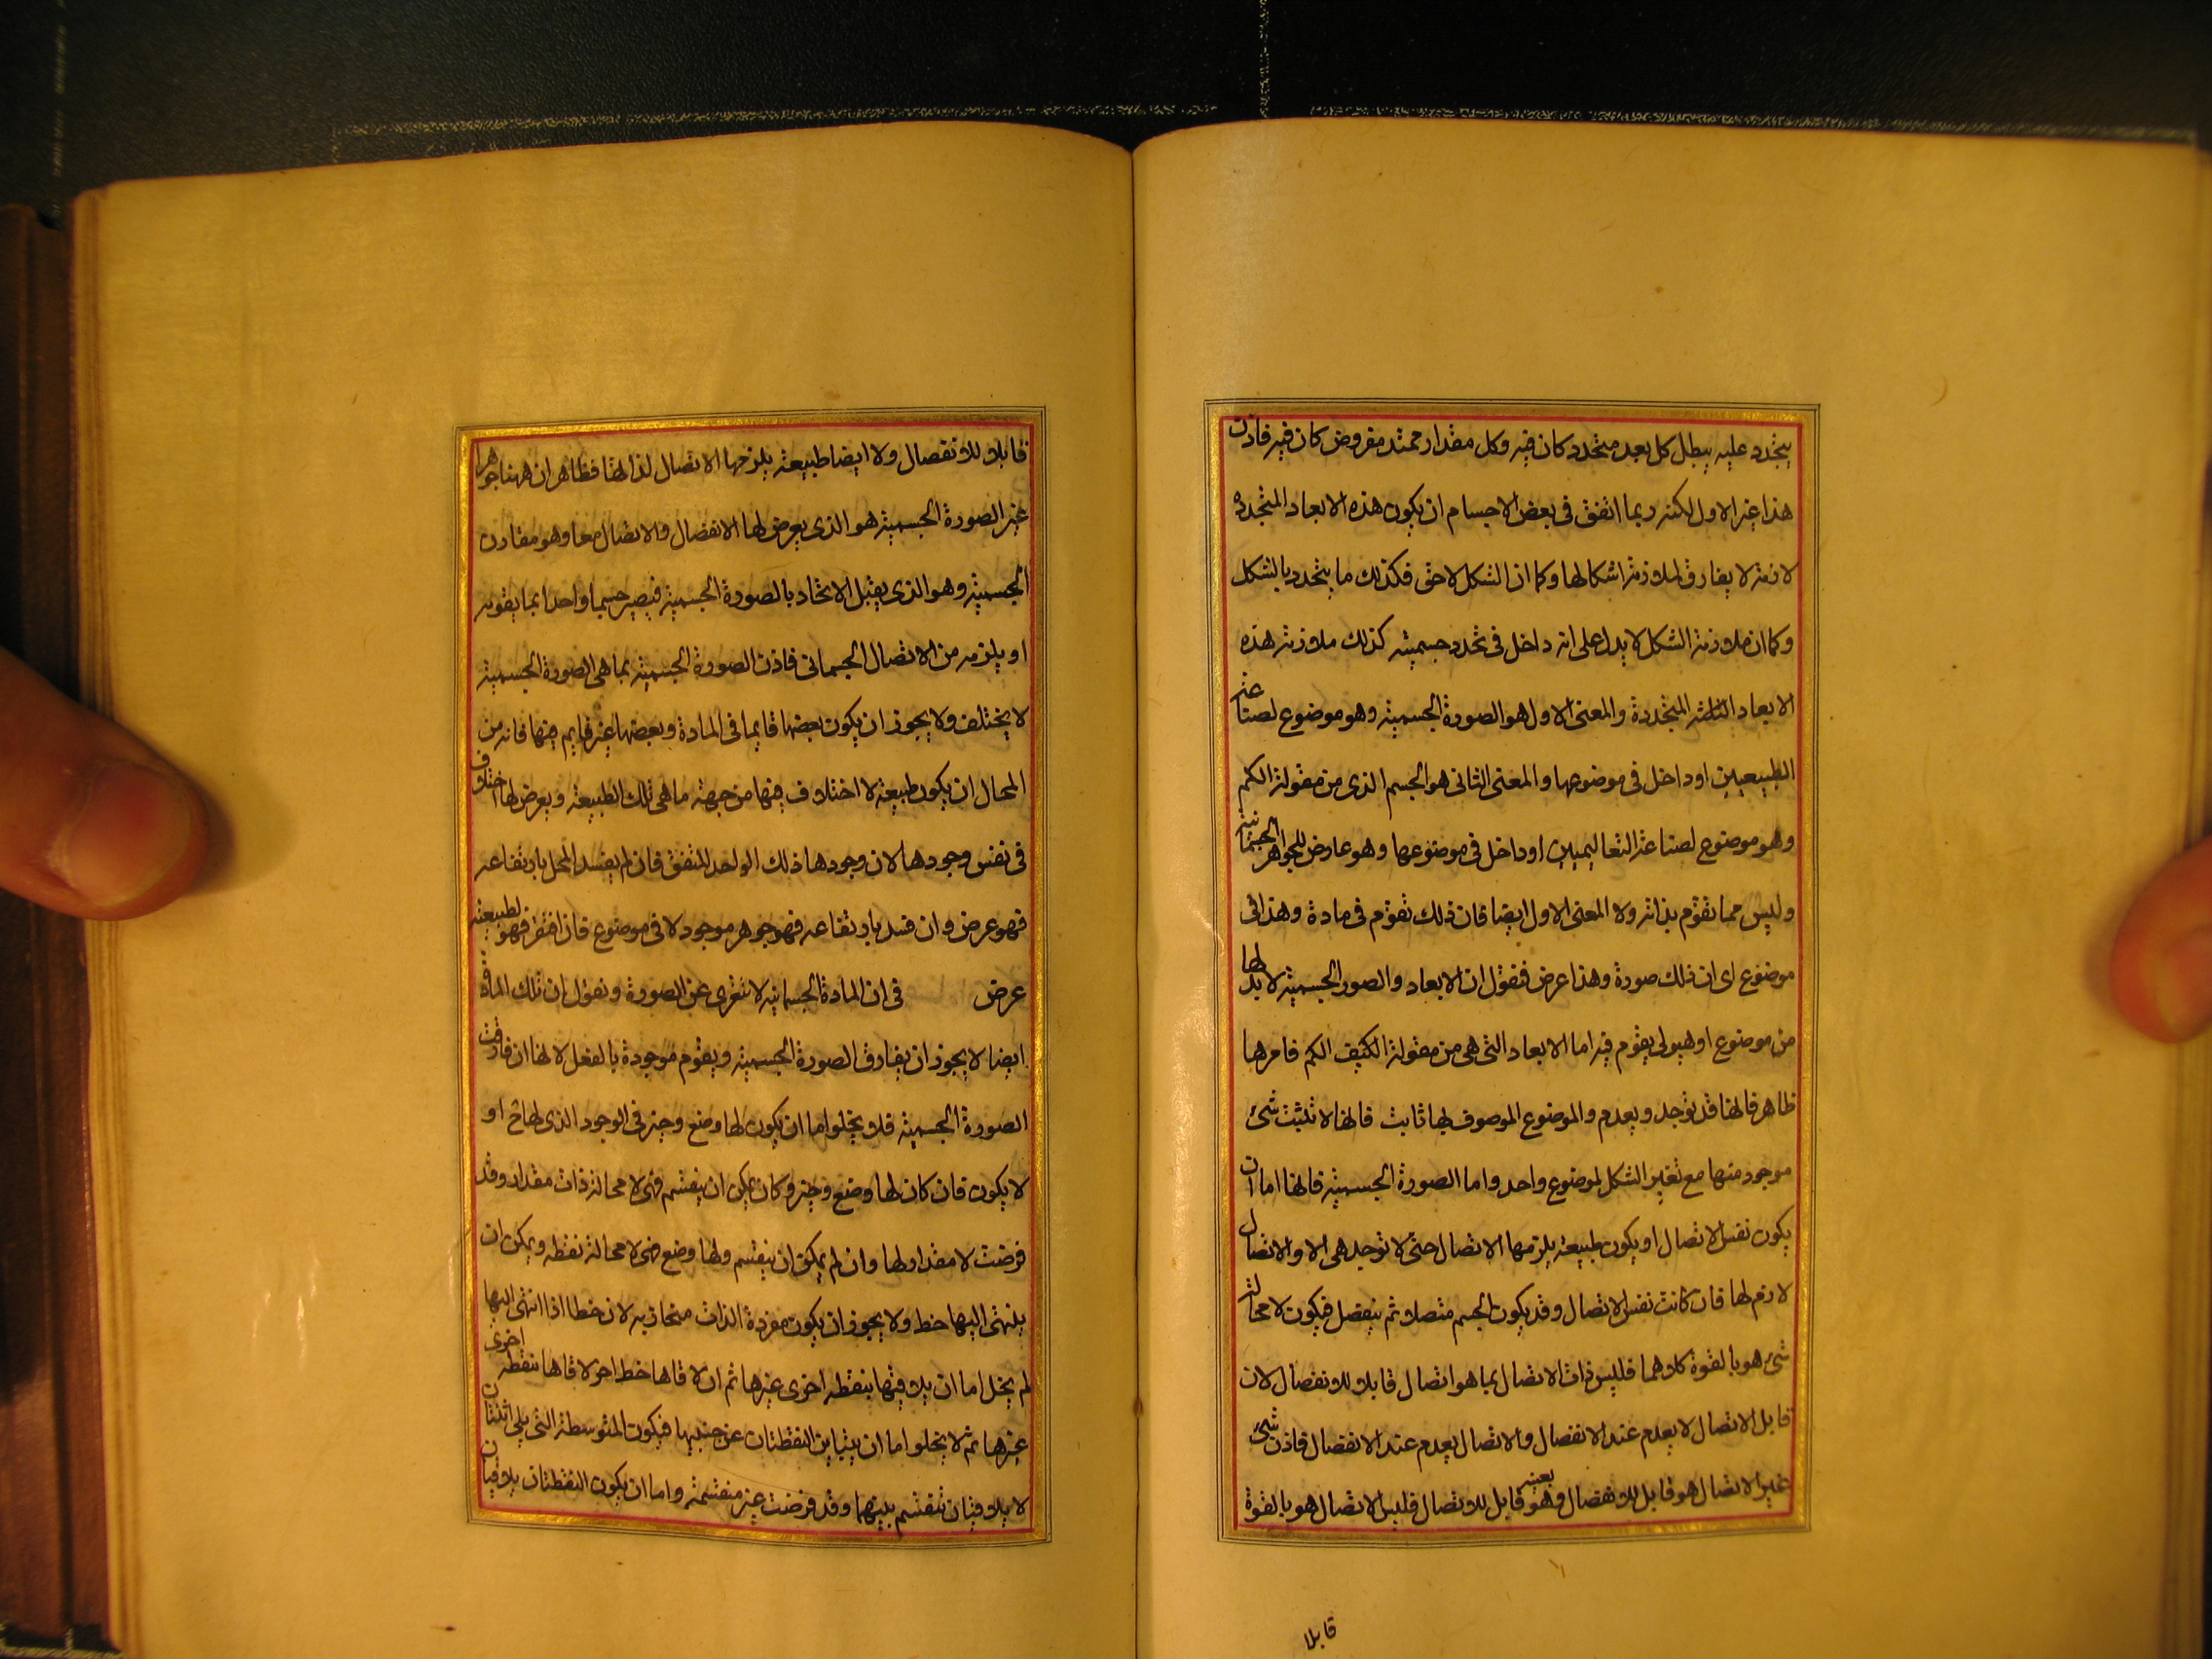 يتجدد عليه يبطل كل بعد متحدد كان فيه وكل مقدار ممتد مفروض كان فيه فاذن
هذا غير الاول لكنه ربما اتفق فى بعض الاجسام ان يكون هذه الابعاد المتجدده
لازمة لا يفارق لملازمة اشكالها وكما ان الشكل لاحق فكذلك ما يتحدد بالشكل
وكما ان ملازمة الشكل لا يدل على انه داخل فى تحدد جسميته كذلك ملازمة هذه
الابعاد الثلثة المتحددة والمعنى الاول هو الصورة الجسمية وهو موضوع لصناعة
الطبيعيين او داخل فى موضوعها والمعنى الثانى هو الجسم الذى من مقولة الكم
وهو موضوع لصناعة التعاليميين او داخل فى موضوعها وهو عارض للجواهر الجسمانية
وليس مما تقوم بذاته ولا المعنى الاول ايضا فان ذلك تقوم فى مادة وهذا فى
موضوع اى ان ذلك صورة وهذا عرض فنقول ان الابعاد والصور الجسمية لا بد لها
من موضوع او هيولى يقوم فيه اما الابعاد التى هى من مقولة الكيف الكم فامرها
ظاهر فانها قد توجد ويعدم والموضوع الموصوف بها ثابت فانها لا تثبت شئ
موجود منها مع تغير الشكل لموضوع واحد واما الصورة الجسمية فانها اما ان
يكون نفس الاتصال او يكون طبيعة يلزمها الاتصال حتى لا توجد هى الا والاتصال
لازم لها فان كانت نفس الاتصال وقد يكون الجسم متصلا ثم ينفصل فيكون لا محالة
شئ هو بالقوة كلاهما فليس ذات الاتصال بما هو اتصال قابلا للانفصال لان
قابل الاتصال لا يعدم عند الانفصال والاتصال يعدم عند الانفصال فاذن شئ
غير الاتصال هو قابل للانفصال وهو بعينه قابل للاتصال فليس الاتصال هو بالقوة
قابلا
قابلا للانفصال ولا ايضا طبيعة يلزمها الاتصال لذاتها فظاهر ان ههنا جوهرا
غير الصورة الجسمية هو الذى يعرض لها الانفصال والاتصال معا وهو مقارن
الجسمية وهو الذى يقبل الاتحاد بالصورة الجسمية فيصير جسما واحدا بما يقومه
او يلزمه من الاتصال الجسمانى فاذن الصورة الجسمية بما هى الصورة الجسمية
لا يختلف ولا يجوز ان يكون بعضها قايما فى المادة وبعضها غير قايم فيها فانه من
المحال ان يكون طبيعة لا اختلاف فيها من جهة ما هى تلك الطبيعة ويعرض لها اختلاف
فى نفس وجودها لان وجودها ذلك الواحد المتفق فان لم يفسد المحل بارتفاعه
فهو عرض وان فسد بارتفاعه فهو جوهر موجود لا فى موضوع فان افتقر فهو لطبيعته
عرض فى ان المادة الجسمانية لا تتعرى عن الصورة ونقول ان تلك المادة
ايضا لا يجوز ان يفارق الصورة الجسمية ويقوم موجودة بالفعل لانها ان فارقت
الصورة الجسمية فلا يخلو اما ان يكون لها وضع وحيز فى الوجود الذى لها ح او
لا يكون فان كان لها وضع وحيز وكان يمكن ان ينقسم فهى لا محالة ذات مقدار وقد
فرضت لا مقدار لها وان لم يمكن ان ينقسم ولها وضع فهى لا محالة نقطه ويمكن ان
ينتهى اليها خط ولا يجوز ان يكون مفردة الذات منحازيه لان خطا اذا انتهى اليها
لم يخل اما ان يلاقيها بنقطه اخرى غيرها ثم ان لاقاها خط اخر لاقاها بنقطه اخرى
غيرها ثم لا يخلو اما ان يتباين النقطتان عن جنبيها فيكون المتوسطة التى يلى اثنتان
لا يلاقيان تنقسم بينهما وقد فرضت غير منقسمة واما ان يكون النقطتان يلاقيان